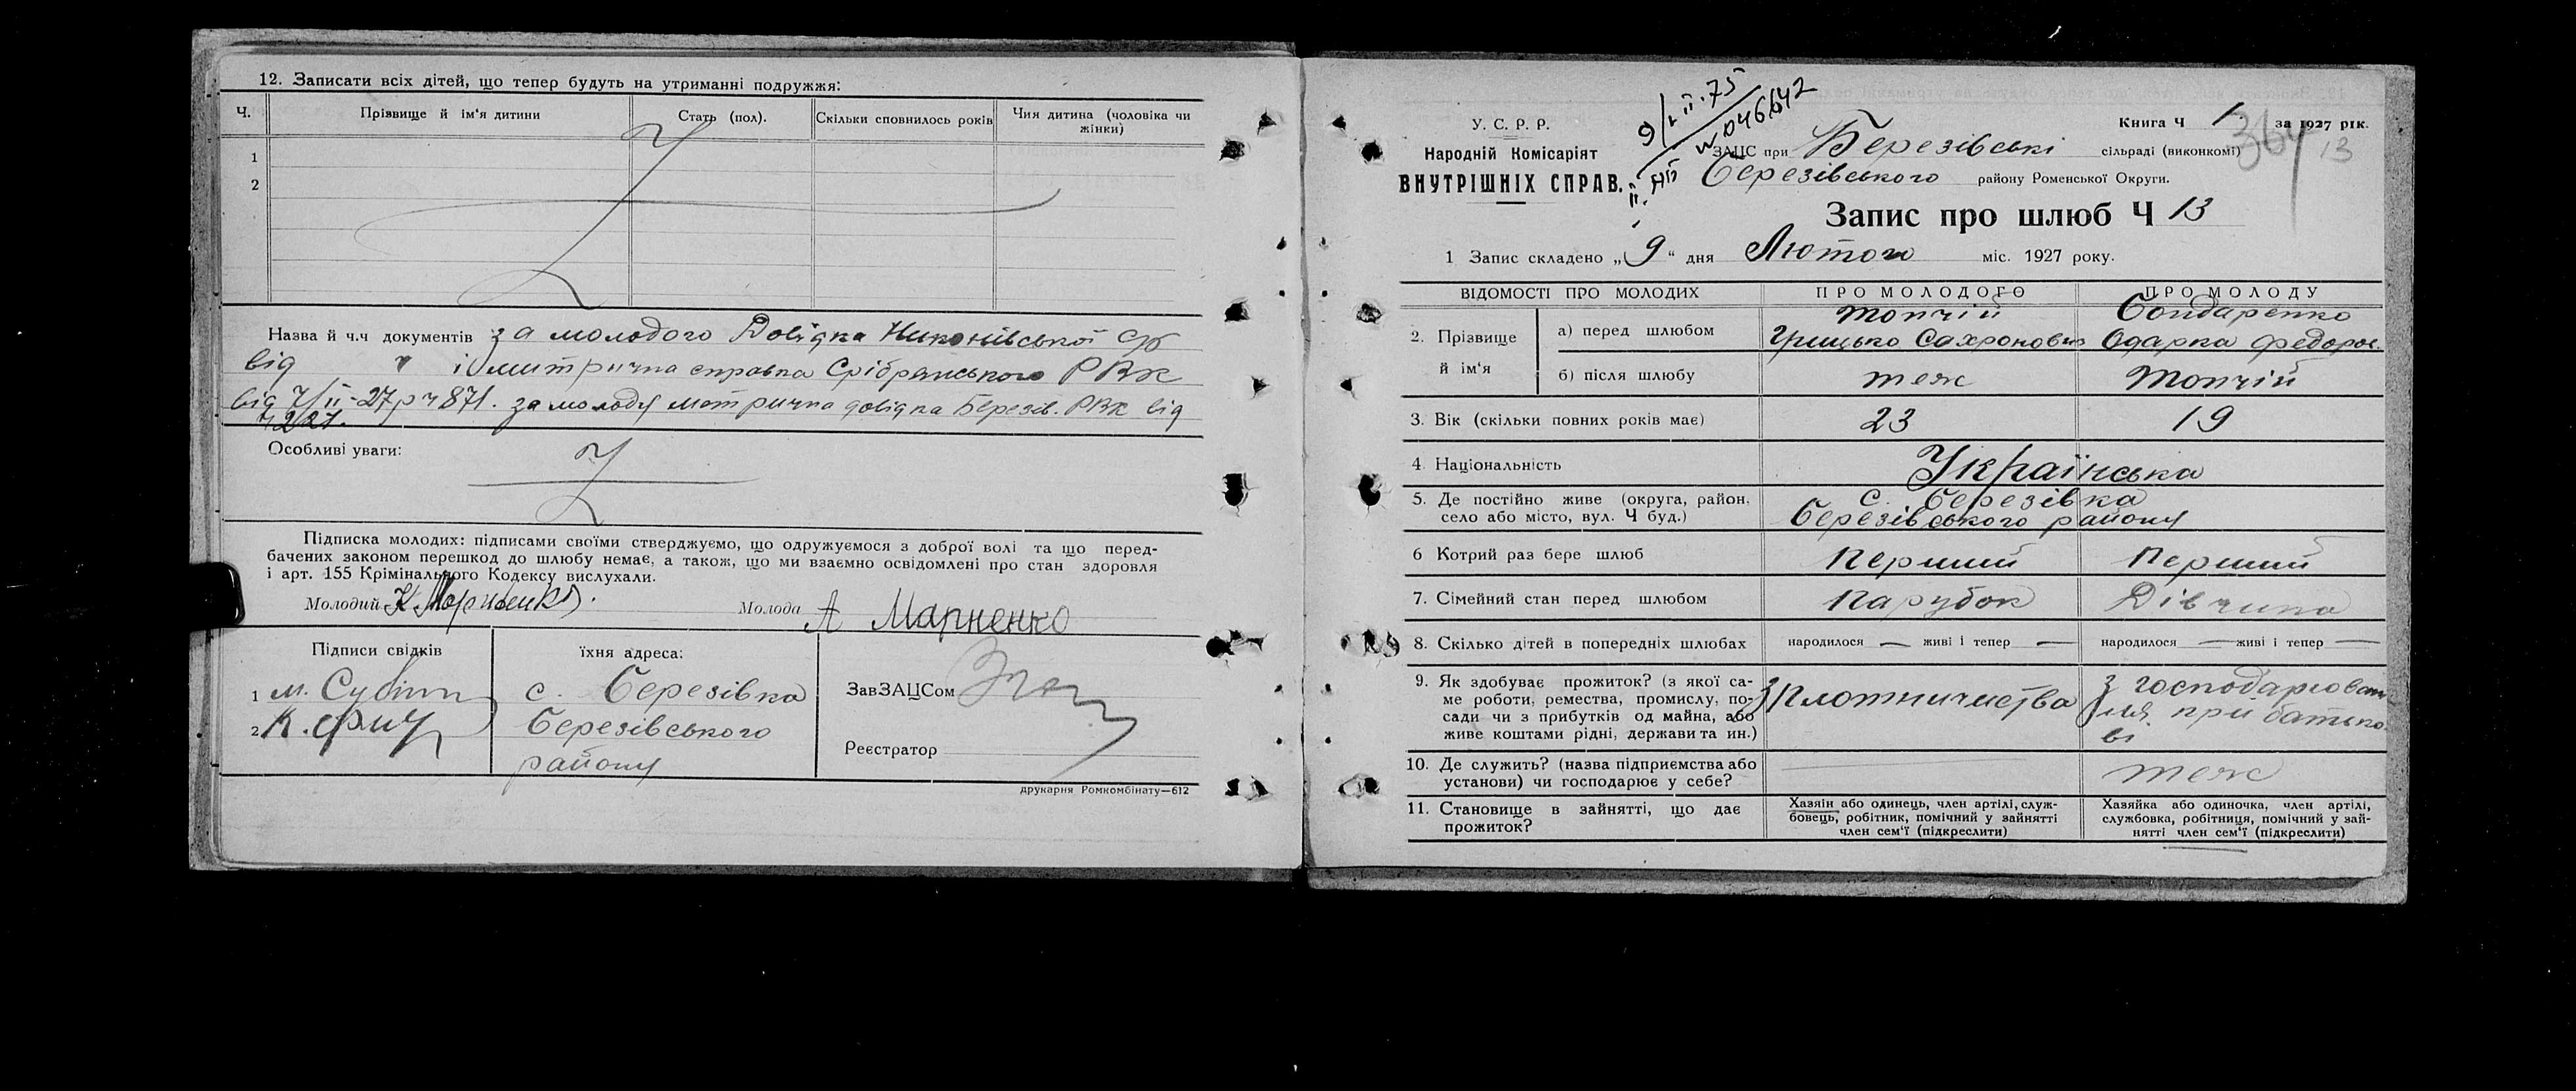 12. Записати всіх дітей, що тепер будуть на утриманні подружжя:
Ч. Прізвище й ім'я дитини Стать (пол). Скільки сповнилось років Чия дитина (чоловіка чи жінки)
1
2
Назва й ч.ч документів за молодого Довідка Никонівської с/б
від " і митрична справка Срібрянського РВК
від 7/ІІ-27р ч 871. за молоду метрична довідка Березів. РВК від
Особливі уваги:
Підписка молодих: підписами своїми стверджуємо, що одружуємося з доброї волі та що перед-
бачених законом перешкод до шлюбу немає, а також, що ми взаємно освідомлені про стан здоровля
і арт. 155 Крімінального Кодексу вислухали.
Молодий К Марненко. Молода А Марненко
Підписи свідків їхня адреса:
1 м. Субіт с. Березівка ЗавЗАЦСом
2 К. Березівського
району Реєстратор
друкарня Ромкомбінату—612
9/ІІ.75
У. С. Р. Р.
Народній Комісаріят
ВНУТРІШНІХ СПРАВ.
046642
Книга Ч 1. за 1927 рік.
364
13
ЗАЦС при Березівські сільраді (виконкомі)
Березівського району Роменської Округи.
Запис про шлюб Ч 13
1 Запис складено „9“ дня Лютого міс. 1927 року.
ВІДОМОСТІ ПРО МОЛОДИХ ПРО МОЛОДОГО ПРО МОЛОДУ
2. Прізвище й ім'я а) перед шлюбом Топчій Грицько Сахронович Бондаренко Одарка Федоров.
б) після шлюбу теж Топчій
3. Вік (скільки повних років має) 23 19
4 Національність Українська
5. Де постійно живе (округа, район, с. Березівка
село або місто, вул. Ч буд.) Березівського району
6 Котрий раз бере шлюб Перший Перший
7. Сімейний стан перед шлюбом Парубок Дівчина
8. Скілько дітей в попередніх шлюбах народилося — живі і тепер — народилося — живі і тепер —
9. Як здобуває прожиток? (з якої са-
ме роботи, ремества, промислу, по-
сади чи з прибутків од майна, або
живе коштами рідні, держави та ин.)
з плотничиства
з господарюван
ня при батько
ві
10. Де служить? (назва підприємства або
установи) чи господарює у себе?
теж
11. Становище в зайнятті, що дає
прожиток?
Хазяін або одинець, член артілі, служ-
бовець, робітник, помічний у зайнятті
член сем'ї (підкреслити)
Хазяйка або одиночка, член артілі,
службовка, робітниця, помічний у зай-
нятті член сем'ї (підкреслити)